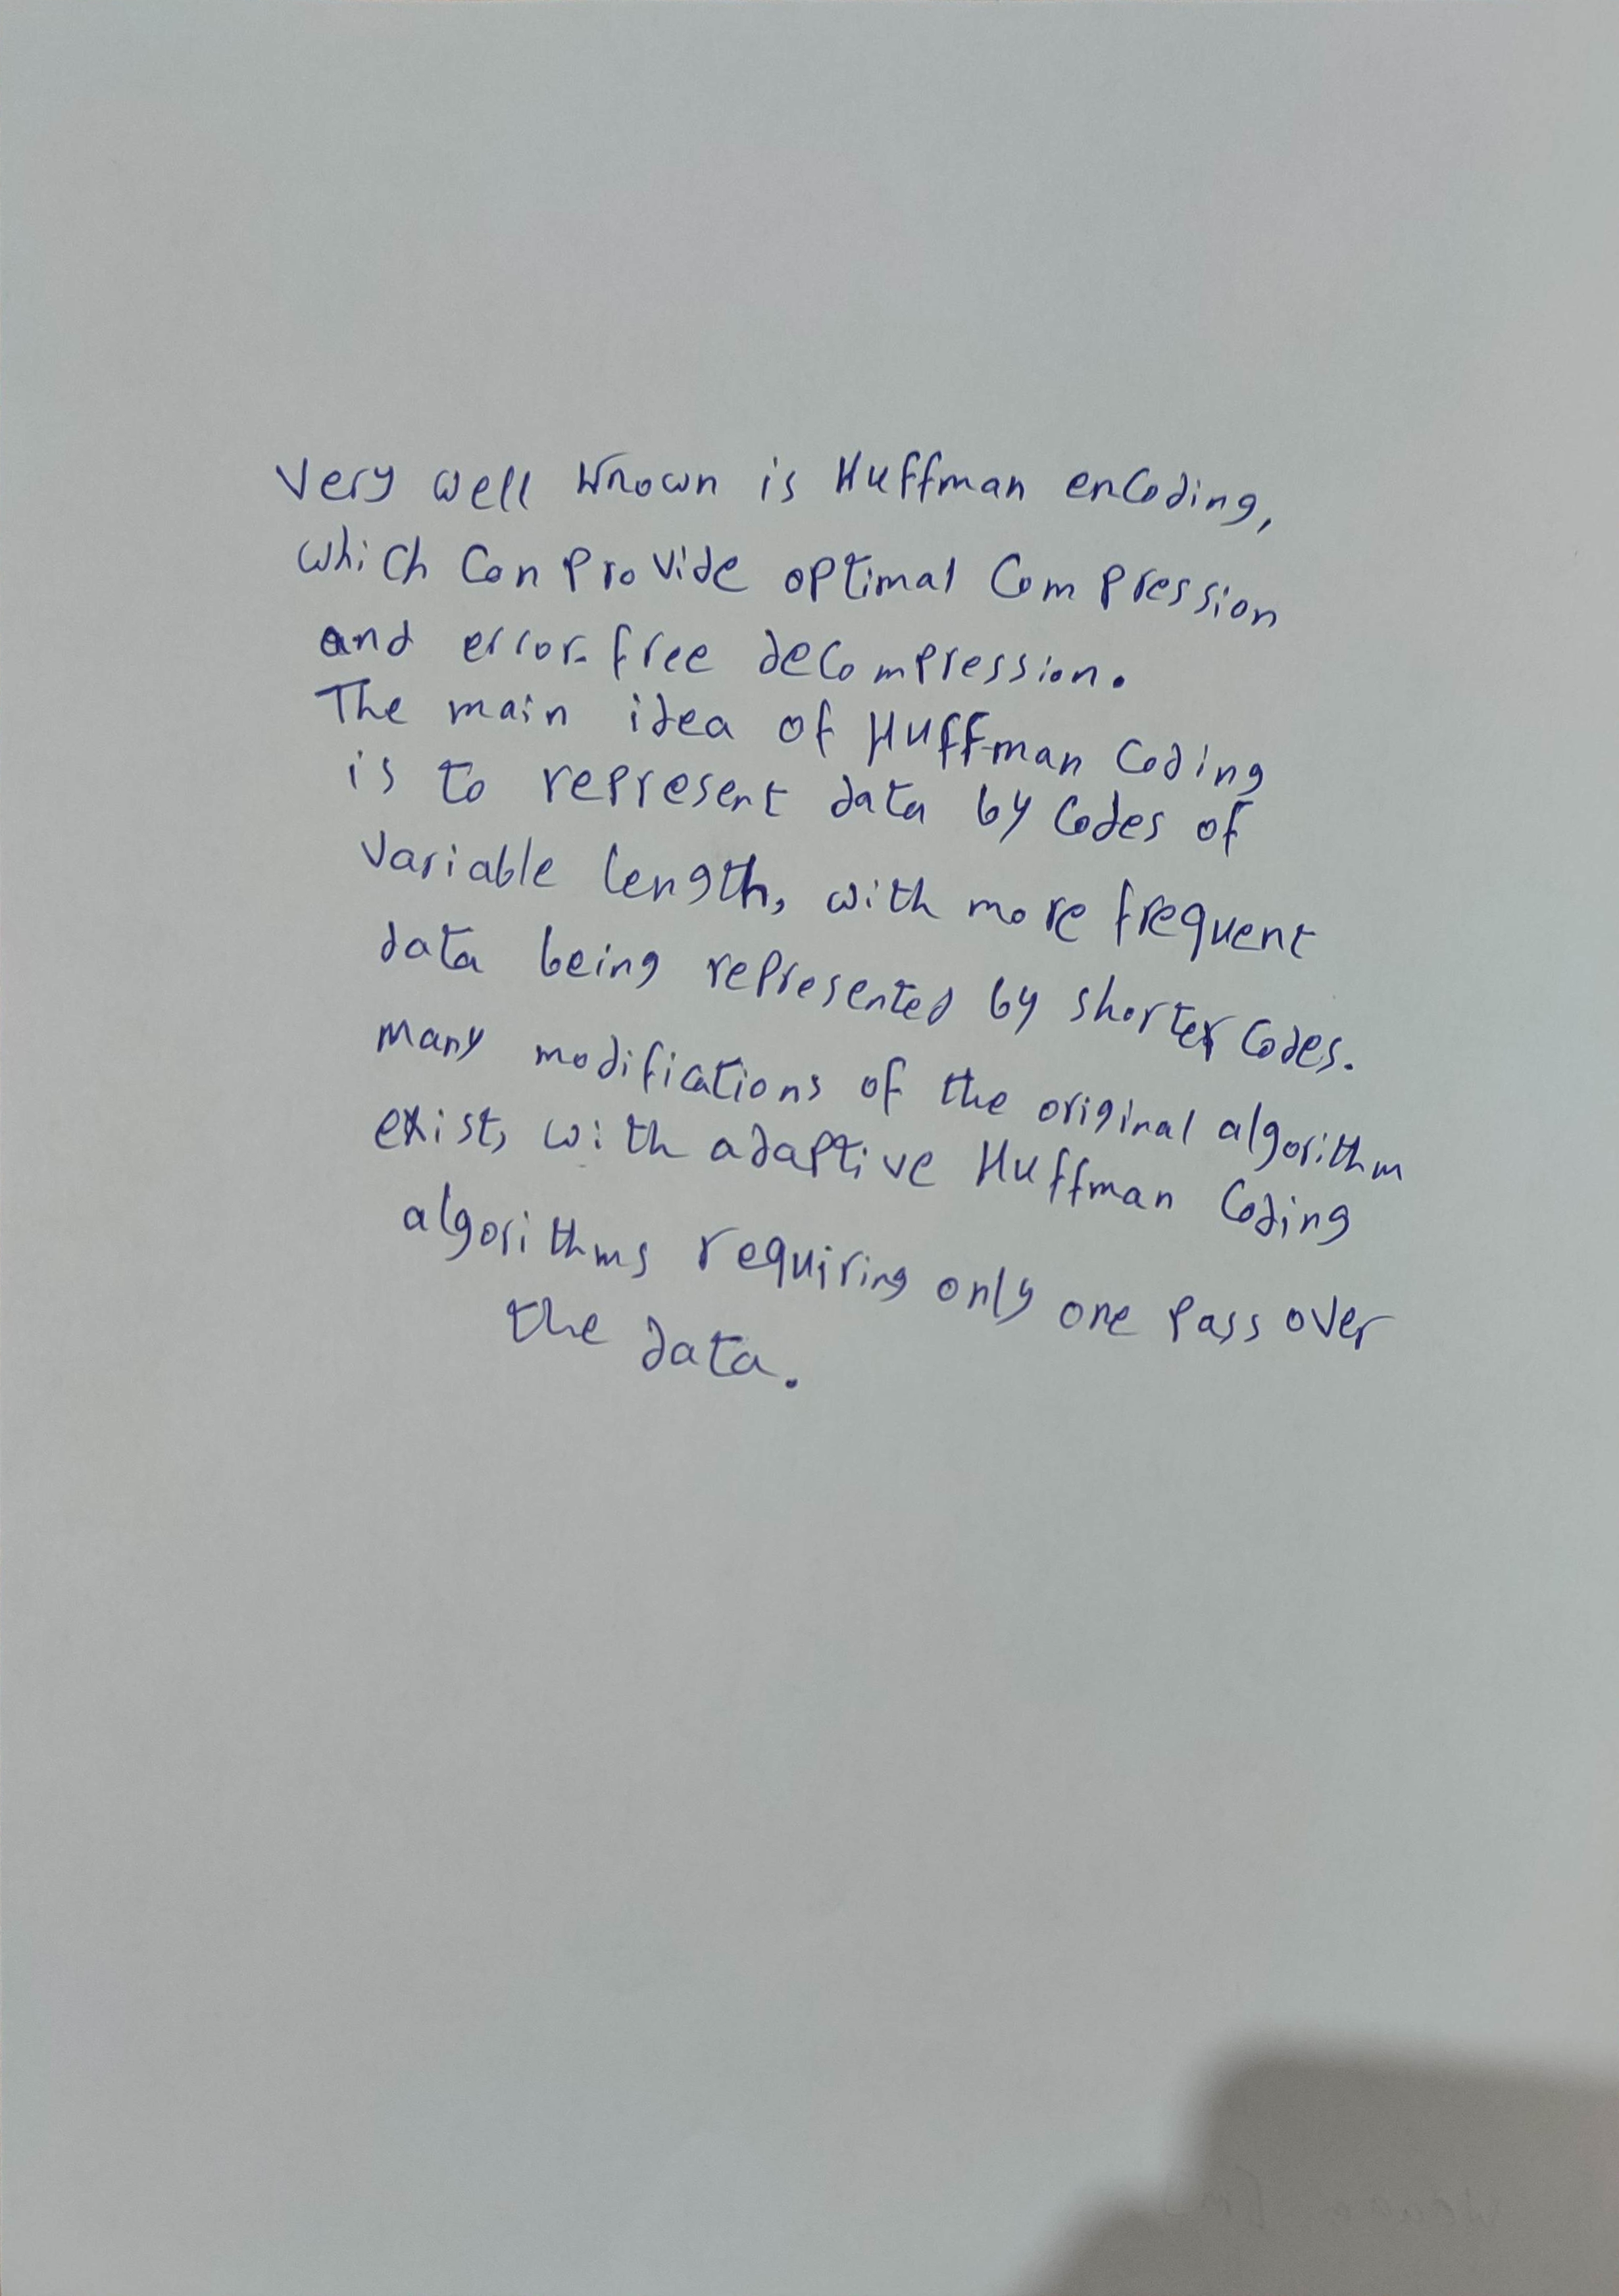 Very well known is Huffman encoding,
which can provide optimal compression
and error-free decompression.
The main idea of Huffman coding
is to represent data by codes of
variable length, with more frequent
data being represented by shorter codes.
many modifications of the original algorithm
exist, with adaptive Huffman coding
algorithms requiring only one pass over
the data.